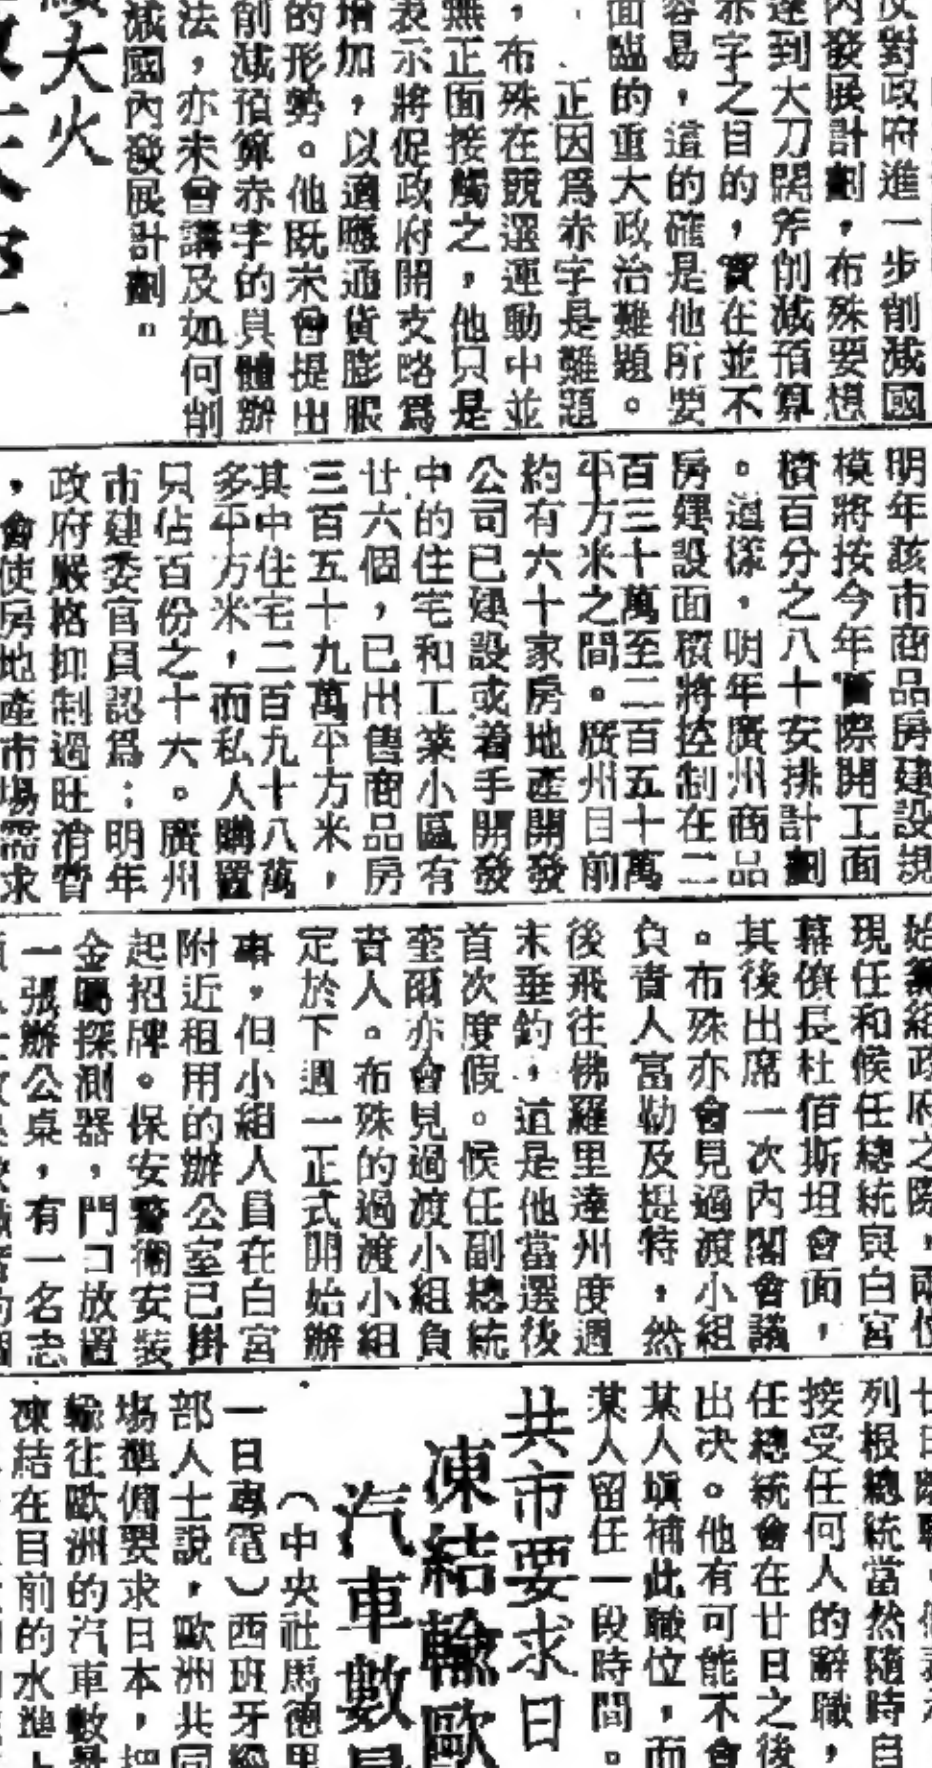 反對政府進一步削減國
內發展計劃，布殊要想
達到大刀闊斧削減預算
赤字之目的，實在並不
容易，這的確是他所要
面臨的重大政治難題。
正因為赤字是難題
，布殊在競選運動中並
無正面接觸之，他只是
表示將促政府開支略為
增加，以適應通貨膨脹
的形勢。他既未曾提出
削減預算赤字的具體辦
法，亦未曾講及如何削
減國內發展計劃。"
大火
明年該市商品房建設規
模將按今年實際開工面
積百分之八十安排計劃
。這樣，明年廣州商品
房建設面積將控制在二
百三十萬至二百五十萬
平方米之間。廣州目前
約有六十家房地產開發
公司已建設或着手開發
中的住宅和工業小區有
廿六個，已出售商品房
三百五十九萬平方米，
其中住宅二百九十八萬
多平方米，而私人購置
只佔百份之十六。廣州
市建委官員認為：明年
政府嚴格抑制過旺消費
，會使房地產市場需求
始籌組政府之際，兩位
現任和候任總統與白宮
幕僚長杜佰斯坦會面，
其後出席一次內閣會議
。布殊亦會見過渡小組
負責人富勒及提特，然
後飛往佛羅里達州度週
末垂釣，這是他當選後
首次度假。候任副總統
奎爾亦會見過渡小組負
責人。布殊的過渡小組
定於下週一正式開始辦
事，但小組人員在白宮
附近租用的辦公室已掛
起招牌。保安警衛安裝
金屬探測器，門口放置
一張辦公桌，有一名志
列根總統當然隨時自
接受任何人的辭職，
任總統會在廿日之後
出決。他有可能不會
某人填補此職位，而
某人留任一段時間。
共市要求日
凍結輸歐
汽車數
（中央社馬德里
一日專電）西班牙經
部人士說，歐洲共同
場準備要求日本，把
輸往歐洲的汽車數量
凍結在目前的水準上